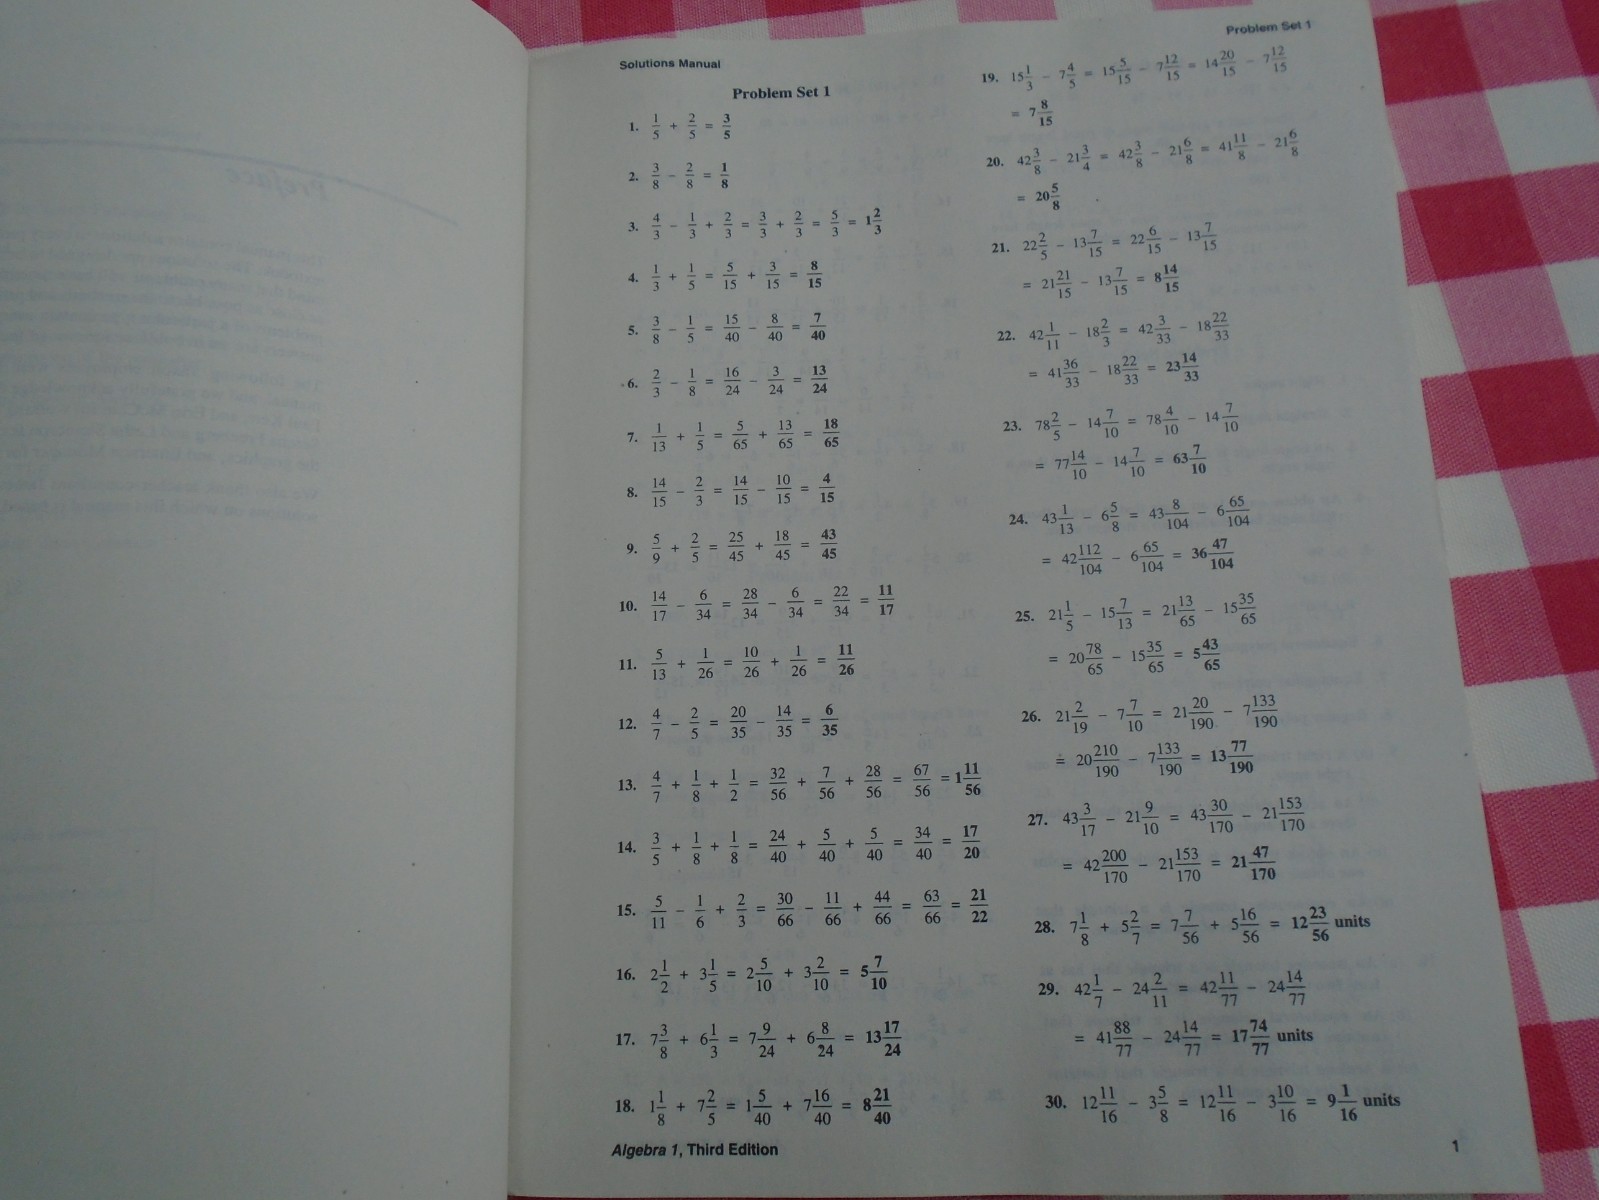 Solutions Manual
Problem Set 1
Problem Set 1
1. 1/5 + 2/5 = 3/5
2. 3/8 − 2/8 = 1/8
3. 4/3 − 1/3 + 2/3 = 3/3 + 2/3 = 5/3 = 1 2/3
4. 1/3 + 1/5 = 5/15 + 3/15 = 8/15
5. 3/8 − 1/5 = 15/40 − 8/40 = 7/40
6. 2/3 − 1/8 = 16/24 − 3/24 = 13/24
7. 1/13 + 1/5 = 5/65 + 13/65 = 18/65
8. 14/15 − 2/3 = 14/15 − 10/15 = 4/15
9. 5/9 + 2/5 = 25/45 + 18/45 = 43/45
10. 14/17 − 6/34 = 28/34 − 6/34 = 22/34 = 11/17
11. 5/13 + 1/26 = 10/26 + 1/26 = 11/26
12. 4/7 − 2/5 = 20/35 − 14/35 = 6/35
13. 4/7 + 1/8 + 1/2 = 32/56 + 7/56 + 28/56 = 67/56 = 1 11/56
14. 3/5 + 1/8 + 1/8 = 24/40 + 5/40 + 5/40 = 34/40 = 17/20
15. 5/11 − 1/6 + 2/3 = 30/66 − 11/66 + 44/66 = 63/66 = 21/22
16. 2 1/2 + 3 1/5 = 2 5/10 + 3 2/10 = 5 7/10
17. 7 3/8 + 6 1/3 = 7 9/24 + 6 8/24 = 13 17/24
18. 1 1/8 + 7 2/5 = 1 5/40 + 7 16/40 = 8 21/40
19. 15 1/3 − 7 4/5 = 15 5/15 − 7 12/15 = 14 20/15 − 7 12/15
= 7 8/15
20. 42 3/8 − 21 3/4 = 42 3/8 − 21 6/8 = 41 11/8 − 21 6/8
= 20 5/8
21. 22 2/5 − 13 7/15 = 22 6/15 − 13 7/15
= 21 21/15 − 13 7/15 = 8 14/15
22. 42 1/11 − 18 2/3 = 42 3/33 − 18 22/33
= 41 36/33 − 18 22/33 = 23 14/33
23. 78 2/5 − 14 7/10 = 78 4/10 − 14 7/10
= 77 14/10 − 14 7/10 = 63 7/10
24. 43 1/13 − 6 5/8 = 43 8/104 − 6 65/104
= 42 112/104 − 6 65/104 = 36 47/104
25. 21 1/5 − 15 7/13 = 21 13/65 − 15 35/65
= 20 78/65 − 15 35/65 = 5 43/65
26. 21 2/19 − 7 7/10 = 21 20/190 − 7 133/190
= 20 210/190 − 7 133/190 = 13 77/190
27. 43 3/17 − 21 9/10 = 43 30/170 − 21 153/170
= 42 200/170 − 21 153/170 = 21 47/170
28. 7 1/8 + 5 2/7 = 7 7/56 + 5 16/56 = 12 23/56 units
29. 42 1/7 − 24 2/11 = 42 11/77 − 24 14/77
= 41 88/77 − 24 14/77 = 17 74/77 units
30. 12 11/16 − 3 5/8 = 12 11/16 − 3 10/16 = 9 1/16 units
Algebra 1, Third Edition
1